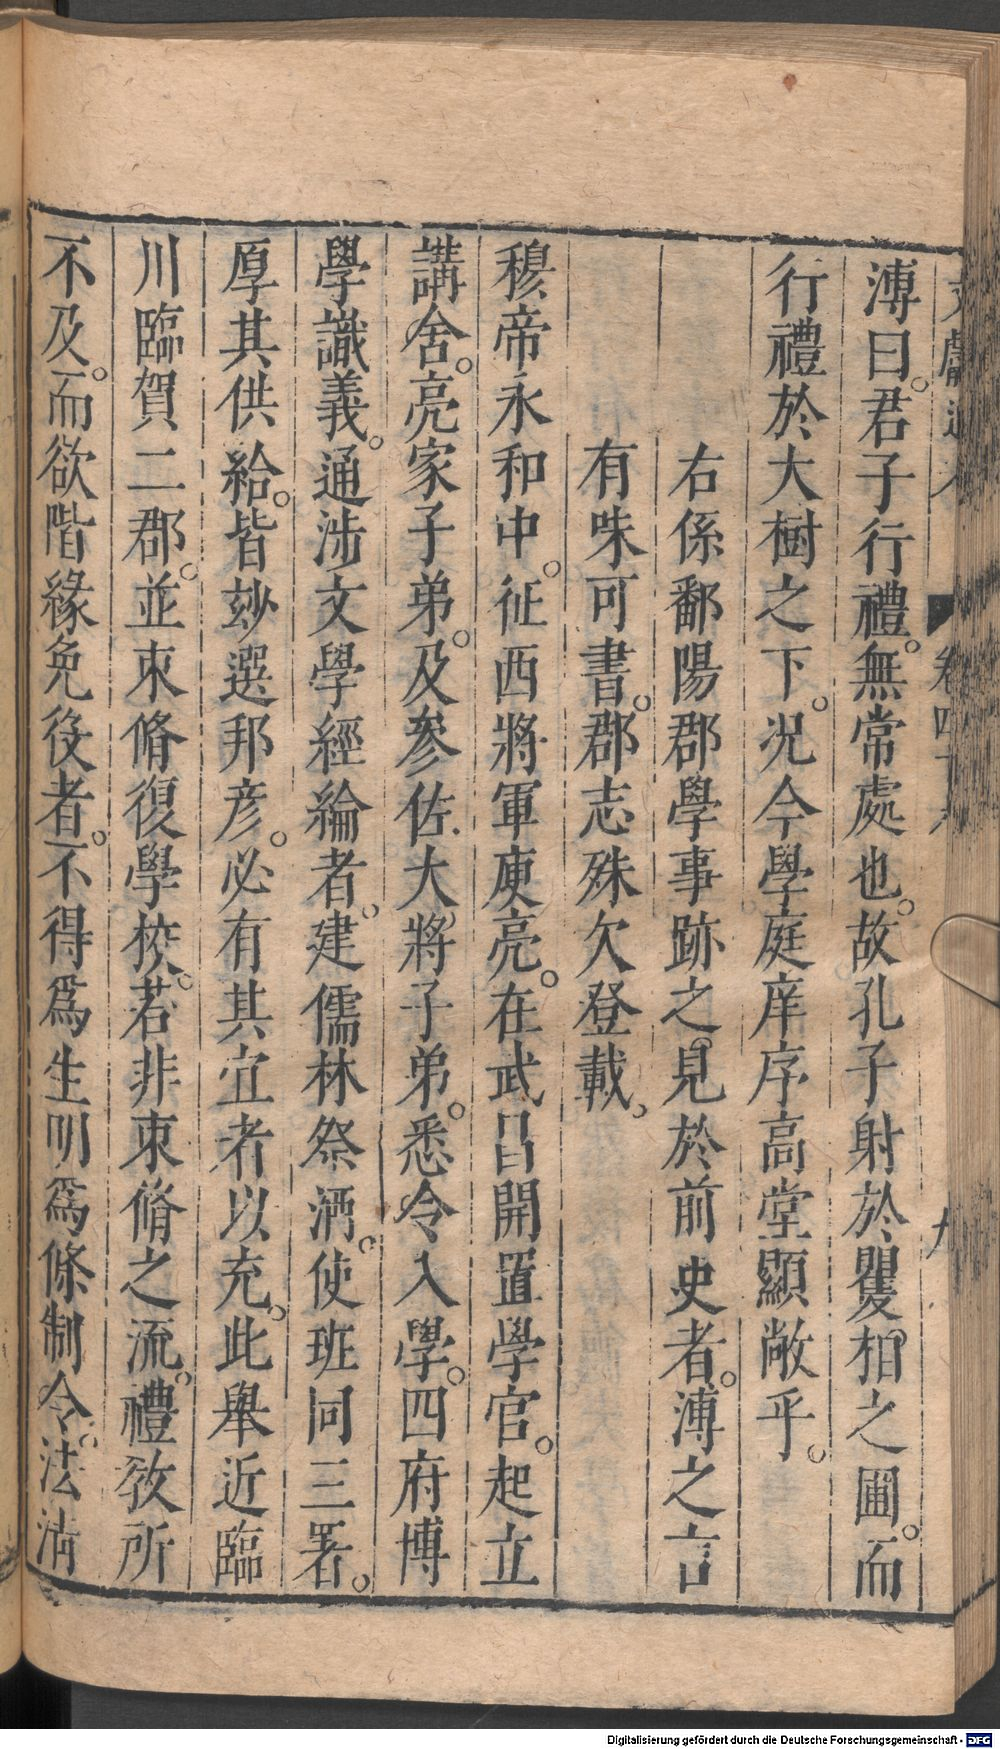 溥曰。君子行禮。無常處也。故孔子射於矍相之圃。而
行禮於大樹之下。况今學庭庠序高堂顯敞乎。
右係鄱陽郡學事跡之見於前史者。溥之言
有味可書。郡志殊欠登載。
穆帝永和中。征西將軍庾亮。在武昌開置學官。起立
講舍。亮家子弟。及參佐大將子弟。悉令入學。四府博
學識義。通涉文學經綸者。建儒林祭酒。使班同三署。
厚其供給。皆玅選邦彦。必有其宜者以充。此舉近臨
川臨賀二郡。並束脩復學校。若非束脩之流。禮敎所
不及。而欲階緣免役者。不得爲生明爲條制令。法淸
文獻通考 卷四十六 九
Digitalisierung gefördert durch die Deutsche Forschungsgemeinschaft - DFG